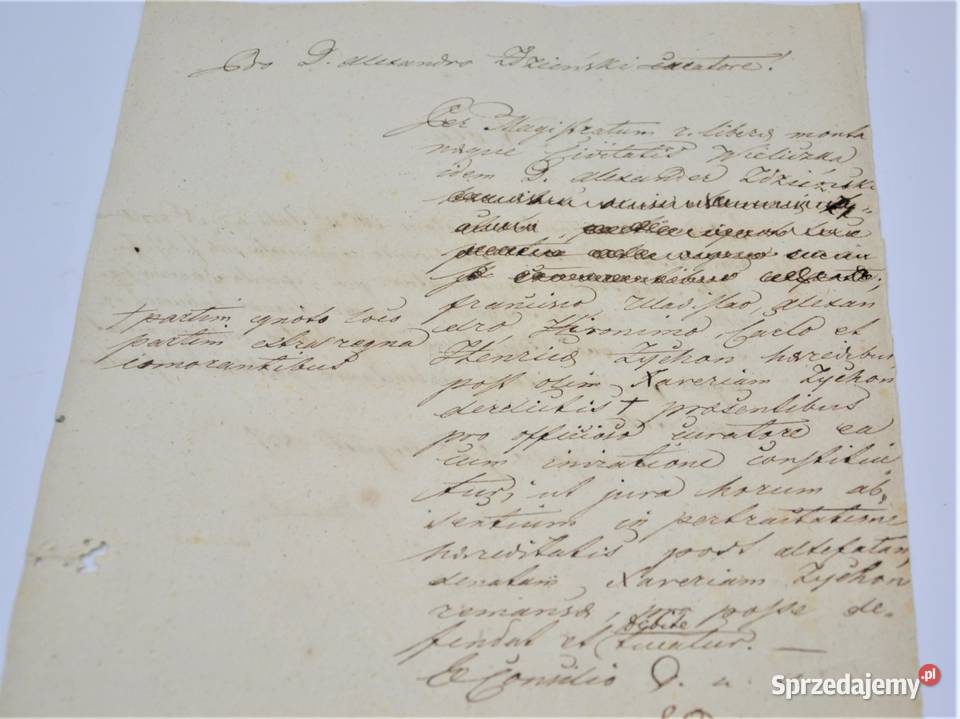 Pro D. Alexandro Zdzieński curatore!
Per Magistratum r. liberæ monta
neque Civitatis Wieliczka
idem D. Alexander Zdzieński
francisco Uladislao, Alexan
dro Hironimo Carlo et
Henrico Zychon hæredibus
post olim Xaveriam Zychon
derelictis + præsentibus
pro officioso curatore ea
cum invitatione constitui
tur, ut jura horum ab,
sentium in pertractatione
hæreditatis post altefatam
denatam Xaveriam Zychon
remansæ pro posse de-
fendat et debite tueatur. —
E Consilio D. u.
+ partim ignoto loco
partim extra regna
comorantibus
Sprzedajemy.pl